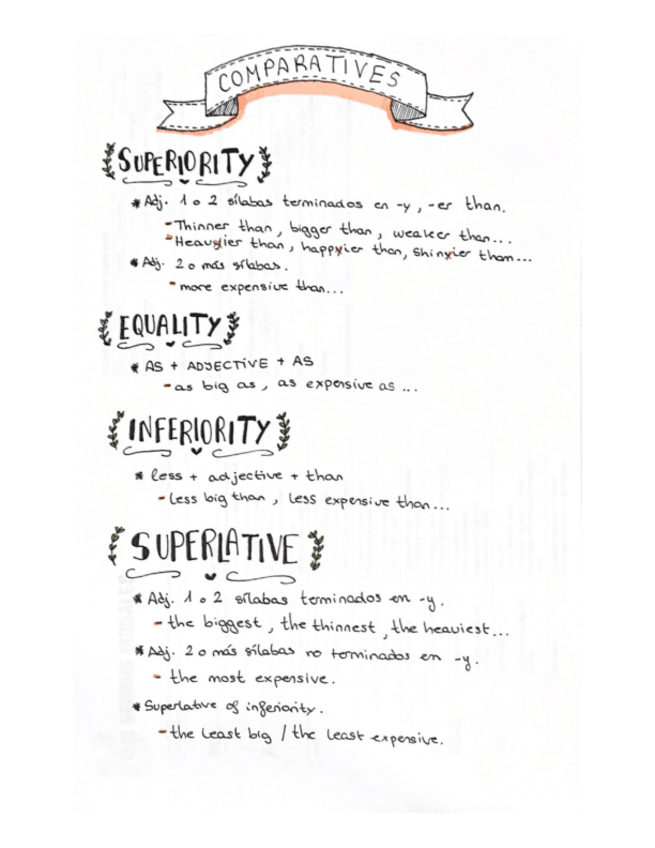 COMPARATIVES
SUPERIORITY
* Adj. 1 o 2 sílabas terminados en -y, -er than.
- Thinner than, bigger than, weaker than...
- Heavyier than, happyier than, shinyier than...
* Adj. 2 o más sílabas.
- more expensive than...
EQUALITY
* AS + ADJECTIVE + AS
- as big as, as expensive as ...
INFERIORITY
* less + adjective + than
- Less big than, less expensive than...
SUPERLATIVE
* Adj. 1 o 2 sílabas terminados en -y.
- the biggest, the thinnest, the heaviest...
* Adj. 2 o más sílabas no terminados en -y.
- the most expensive.
* Superlative of inferiority.
- the least big / the least expensive.